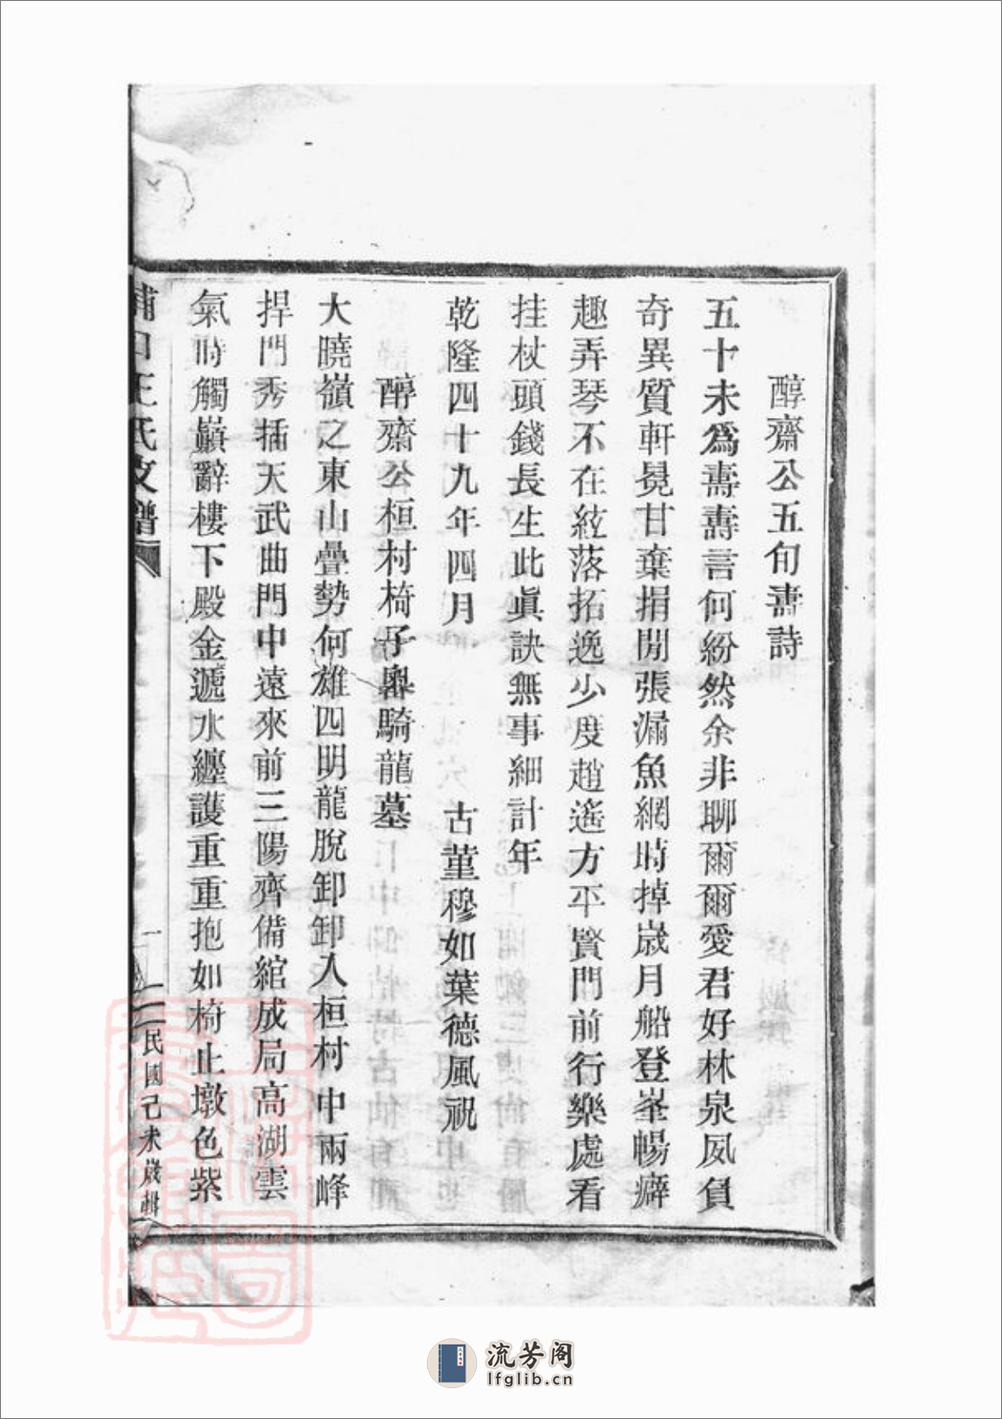 醇齋公五旬壽詩
五十未爲壽壽言何紛然余非聊爾爾愛君好林泉夙負
奇異質軒冕甘棄捐閒張漏魚網時掉歲月船登峯暢癖
趣弄琴不在絃落拓逸少度趙遙方平賢門前行樂處看
挂杖頭錢長生此眞訣無事細計年
乾隆四十九年四月　古堇穆如葉德風祝
醇齋公桓村椅子嶴騎龍墓
大曉嶺之東山疊勢何雄四明龍脫卸卸入桓村中兩峰
捍門秀插天武曲門中遠來前三陽齊備綰成局高湖雲
氣時觸巔辭樓下殿金遞水纏護重重抱如椅止墩色紫
浦口王氏支譜
一
民國己未歲輯
流芳阁
lfglib.cn